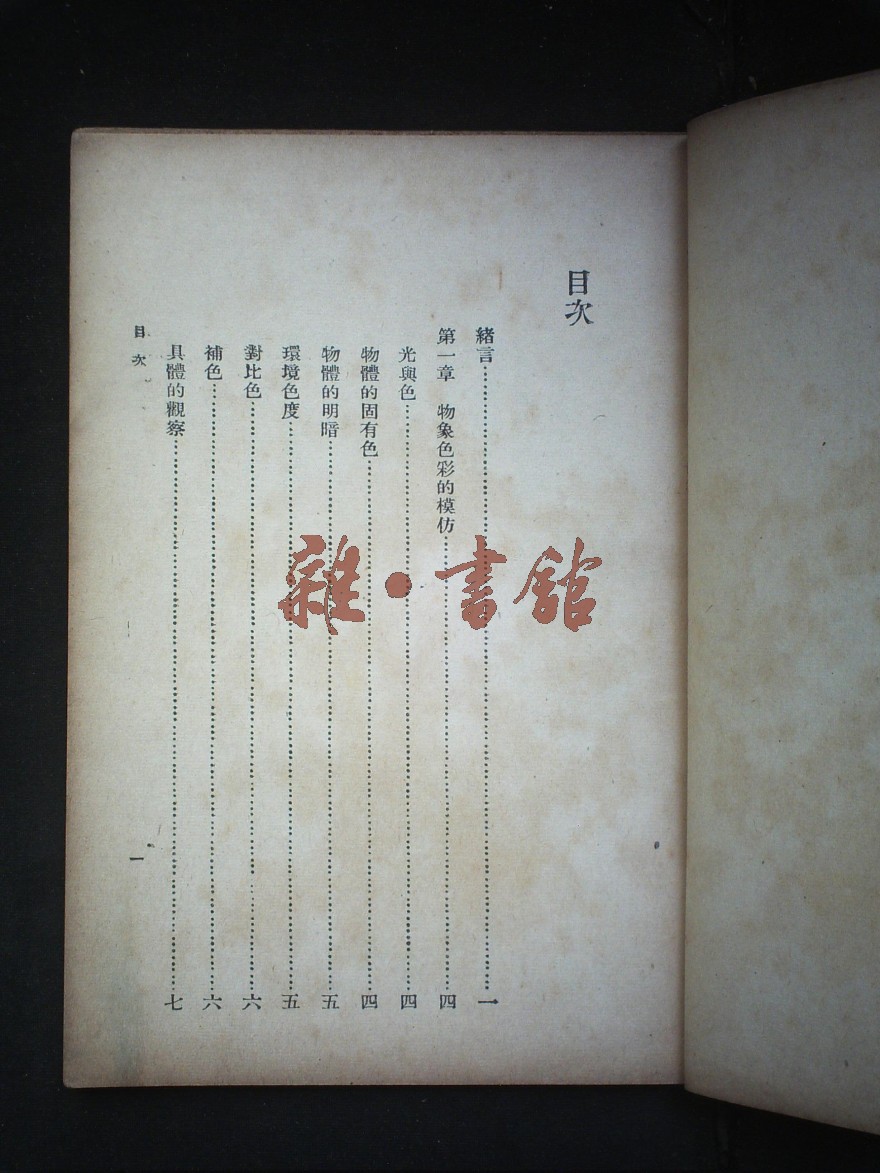 目次
緒言……一
第一章　物象色彩的模仿……四
光與色……四
物體的固有色……四
物體的明暗……五
環境色度……五
對比色……六
補色……六
具體的觀察……七
目次
一
雜·書舘